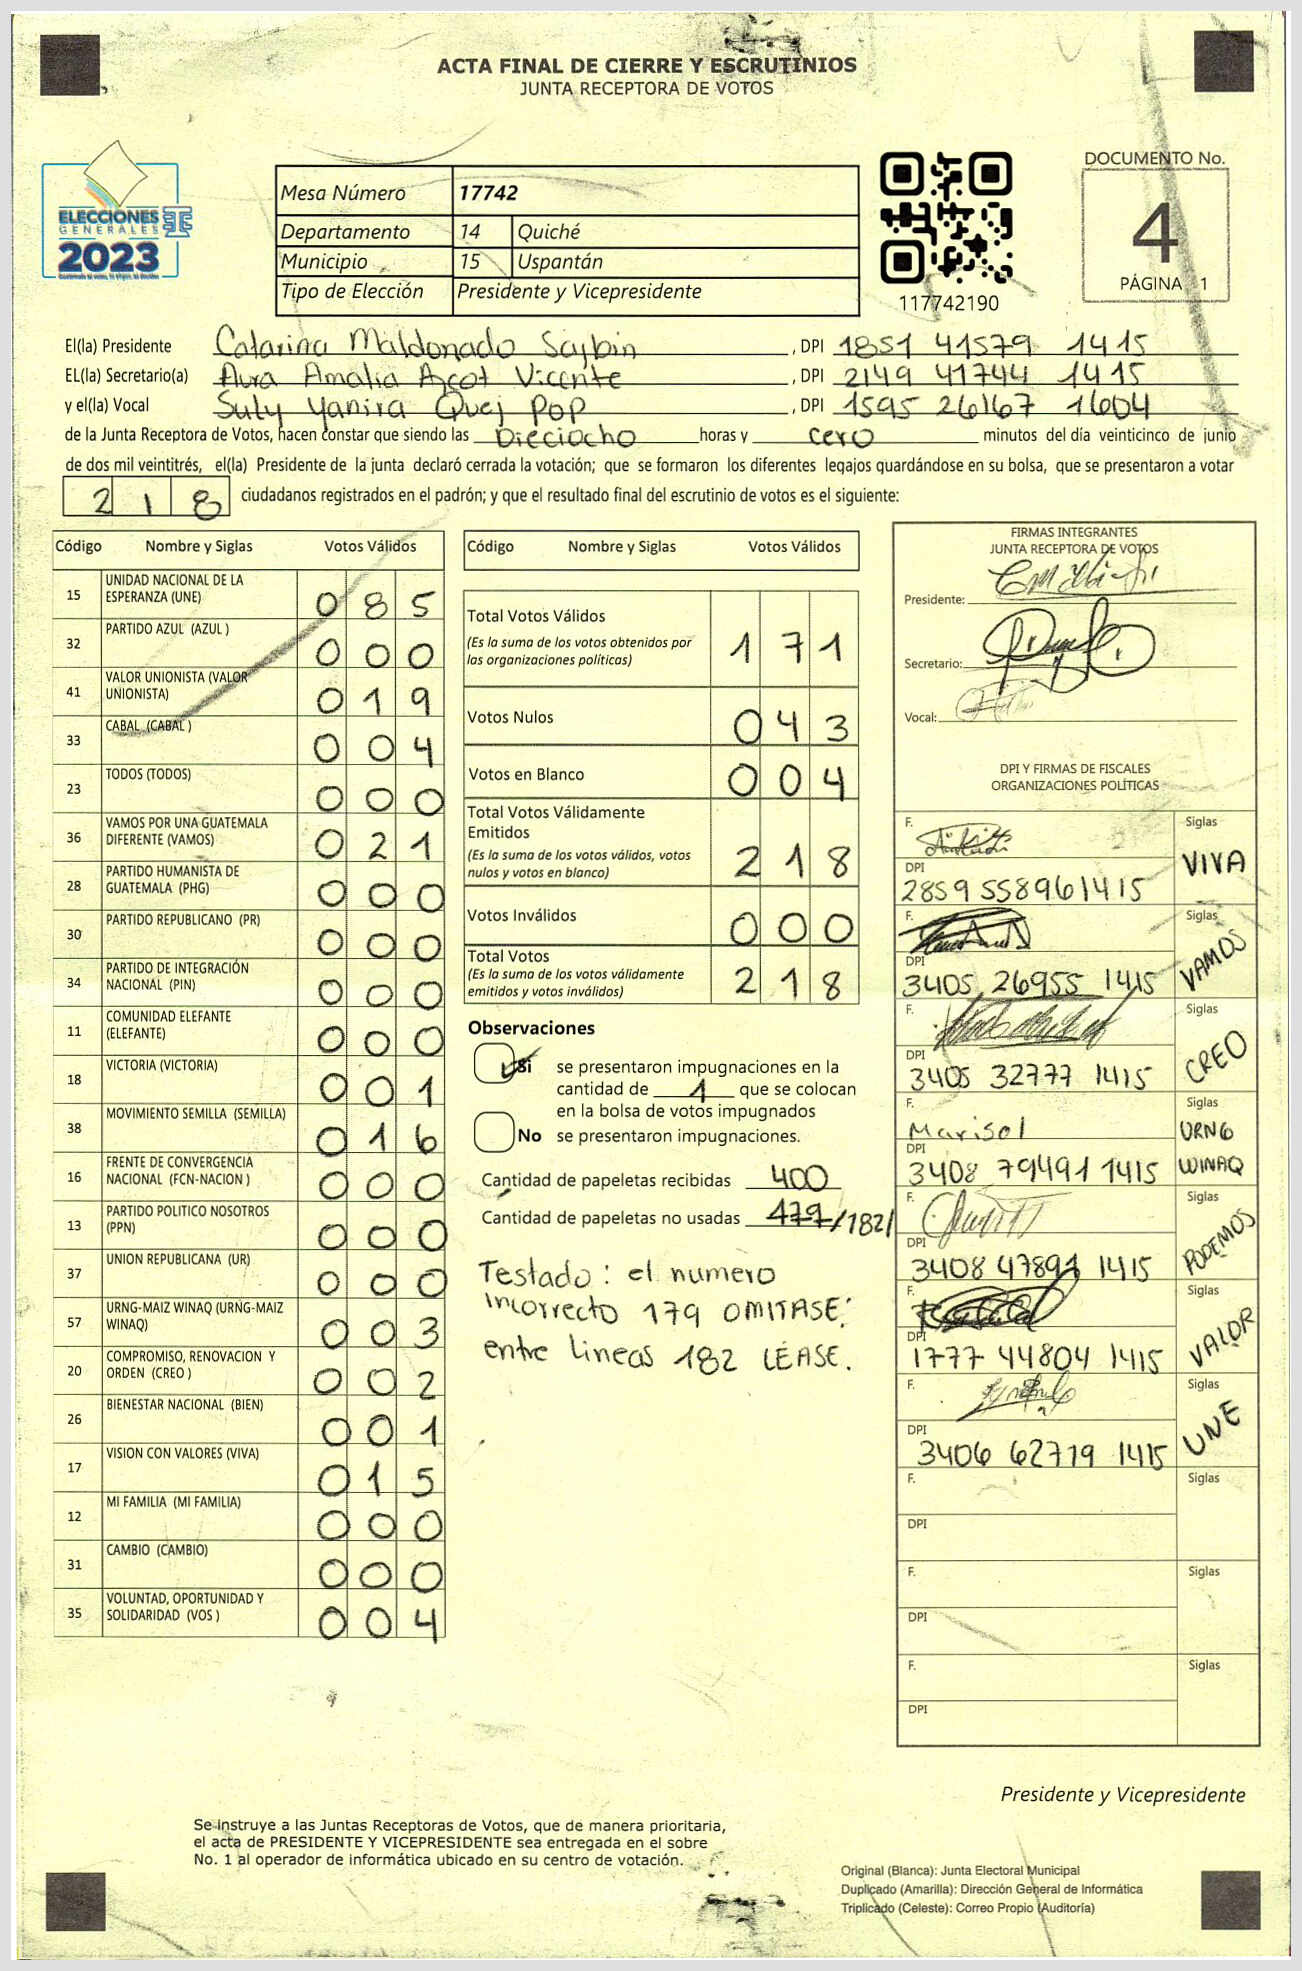 ACTA FINAL DE CIERRE Y ESCRUTINIOS
JUNTA RECEPTORA DE VOTOS
ELECCIONES
GENERALES
2023
Mesa Número 17742
Departamento 14 Quiché
Municipio 15 Uspantán
Tipo de Elección Presidente y Vicepresidente
117742190
DOCUMENTO No.
4
PÁGINA 1
El(la) Presidente Catarina Maldonado Sajbin , DPI 1851 41579 1415
EL(la) Secretario(a) Aura Amalia Axcot Vicente , DPI 2149 41744 1415
y el(la) Vocal Suly Yanira Quej Pop , DPI 1595 26167 1604
de la Junta Receptora de Votos, hacen constar que siendo las Dieciocho horas y cero minutos del día veinticinco de junio
de dos mil veintitrés, el(la) Presidente de la junta declaró cerrada la votación; que se formaron los diferentes legajos guardándose en su bolsa, que se presentaron a votar
218 ciudadanos registrados en el padrón; y que el resultado final del escrutinio de votos es el siguiente:
Código Nombre y Siglas Votos Válidos
15 UNIDAD NACIONAL DE LA ESPERANZA (UNE) 0 8 5
32 PARTIDO AZUL (AZUL ) 0 0 0
41 VALOR UNIONISTA (VALOR UNIONISTA) 0 1 9
33 CABAL (CABAL ) 0 0 4
23 TODOS (TODOS) 0 0 0
36 VAMOS POR UNA GUATEMALA DIFERENTE (VAMOS) 0 2 1
28 PARTIDO HUMANISTA DE GUATEMALA (PHG) 0 0 0
30 PARTIDO REPUBLICANO (PR) 0 0 0
34 PARTIDO DE INTEGRACIÓN NACIONAL (PIN) 0 0 0
11 COMUNIDAD ELEFANTE (ELEFANTE) 0 0 0
18 VICTORIA (VICTORIA) 0 0 1
38 MOVIMIENTO SEMILLA (SEMILLA) 0 1 6
16 FRENTE DE CONVERGENCIA NACIONAL (FCN-NACION ) 0 0 0
13 PARTIDO POLITICO NOSOTROS (PPN) 0 0 0
37 UNION REPUBLICANA (UR) 0 0 0
57 URNG-MAIZ WINAQ (URNG-MAIZ WINAQ) 0 0 3
20 COMPROMISO, RENOVACION Y ORDEN (CREO ) 0 0 2
26 BIENESTAR NACIONAL (BIEN) 0 0 1
17 VISION CON VALORES (VIVA) 0 1 5
12 MI FAMILIA (MI FAMILIA) 0 0 0
31 CAMBIO (CAMBIO) 0 0 0
35 VOLUNTAD, OPORTUNIDAD Y SOLIDARIDAD (VOS ) 0 0 4
Código Nombre y Siglas Votos Válidos
Total Votos Válidos 1 7 1
(Es la suma de los votos obtenidos por
las organizaciones políticas)
Votos Nulos 0 4 3
Votos en Blanco 0 0 4
Total Votos Válidamente
Emitidos 2 1 8
(Es la suma de los votos válidos, votos
nulos y votos en blanco)
Votos Inválidos 0 0 0
Total Votos 2 1 8
(Es la suma de los votos válidamente
emitidos y votos inválidos)
Observaciones
Si se presentaron impugnaciones en la
cantidad de 1 que se colocan
en la bolsa de votos impugnados
No se presentaron impugnaciones.
Cantidad de papeletas recibidas 400
Cantidad de papeletas no usadas 179/182/
Testado: el numero
incorrecto 179 OMITASE:
entre lineas 182 LÉASE.
FIRMAS INTEGRANTES
JUNTA RECEPTORA DE VOTOS
Presidente:
Secretario:
Vocal:
DPI Y FIRMAS DE FISCALES
ORGANIZACIONES POLÍTICAS
F. Siglas
VIVA
DPI
2859 55896 1415
F. Siglas
VAMOS
DPI
3405 26955 1415
F. Siglas
CREO
DPI
3405 32777 1415
F. Siglas
Marisol URNG
DPI
3408 79491 1415 WINAQ
F. Siglas
PODEMOS
DPI
3408 47891 1415
F. Siglas
VALOR
DPI
1777 44804 1415
F. Siglas
UNE
DPI
3406 62779 1415
F. Siglas
DPI
F. Siglas
DPI
F. Siglas
DPI
Presidente y Vicepresidente
Se instruye a las Juntas Receptoras de Votos, que de manera prioritaria,
el acta de PRESIDENTE Y VICEPRESIDENTE sea entregada en el sobre
No. 1 al operador de informática ubicado en su centro de votación.
Original (Blanca): Junta Electoral Municipal
Duplicado (Amarilla): Dirección General de Informática
Triplicado (Celeste): Correo Propio (Auditoría)